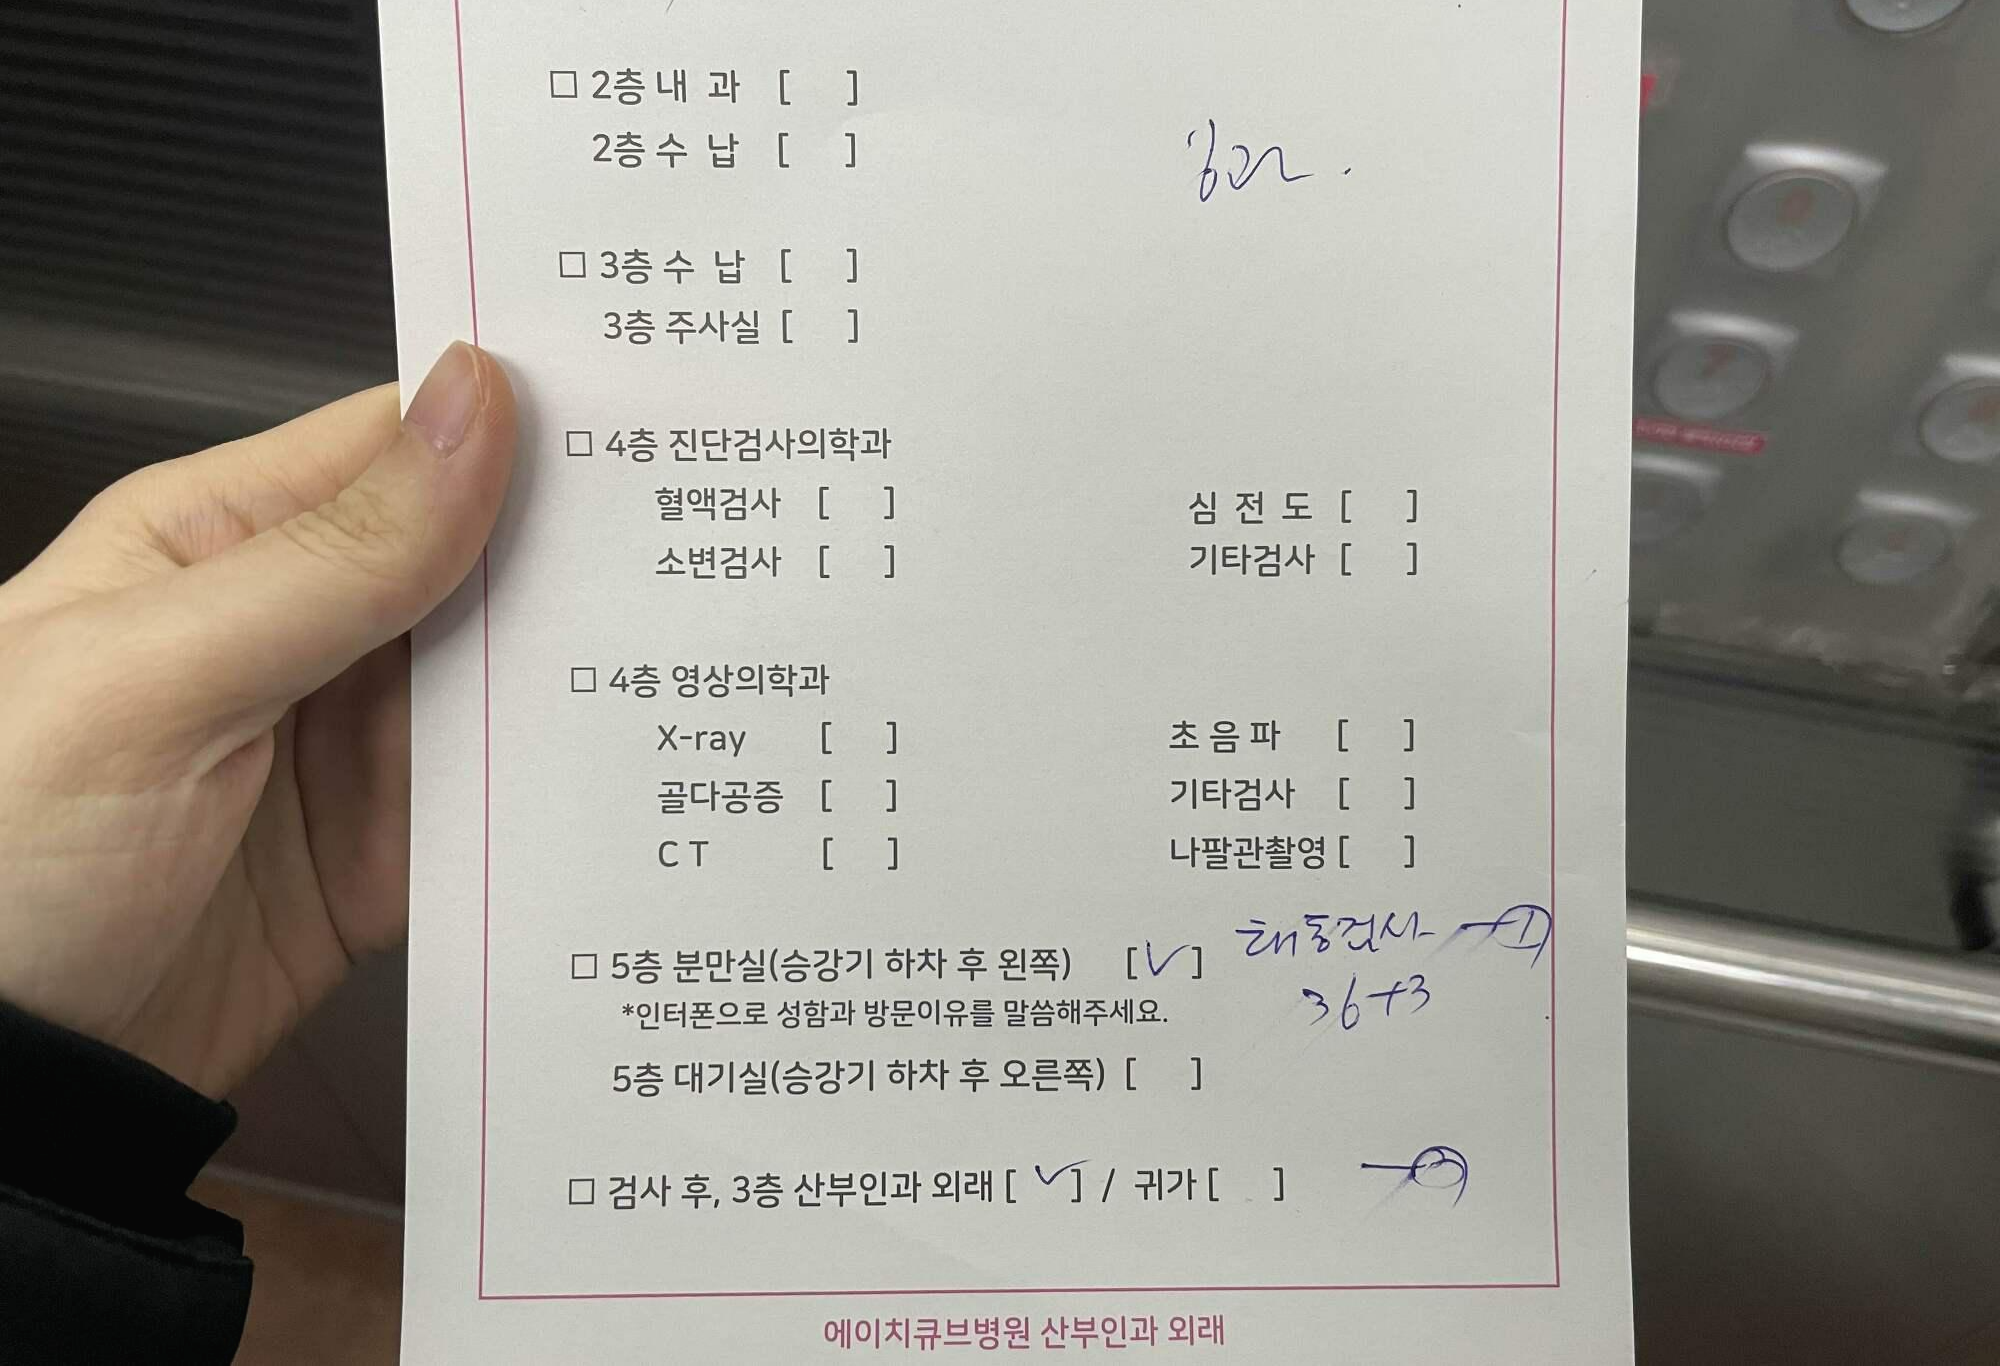 □ 2층 내 과 [ ]
2층 수 납 [ ]
□ 3층 수 납 [ ]
3층 주사실 [ ]
□ 4층 진단검사의학과
혈액검사 [ ] 심 전 도 [ ]
소변검사 [ ] 기타검사 [ ]
□ 4층 영상의학과
X-ray [ ] 초 음 파 [ ]
골다공증 [ ] 기타검사 [ ]
C T [ ] 나팔관촬영 [ ]
태동검사 → ①
□ 5층 분만실(승강기 하차 후 왼쪽) [✓]
36+3
*인터폰으로 성함과 방문이유를 말씀해주세요.
5층 대기실(승강기 하차 후 오른쪽) [ ]
□ 검사 후, 3층 산부인과 외래 [✓] / 귀가 [ ] → ②
에이치큐브병원 산부인과 외래